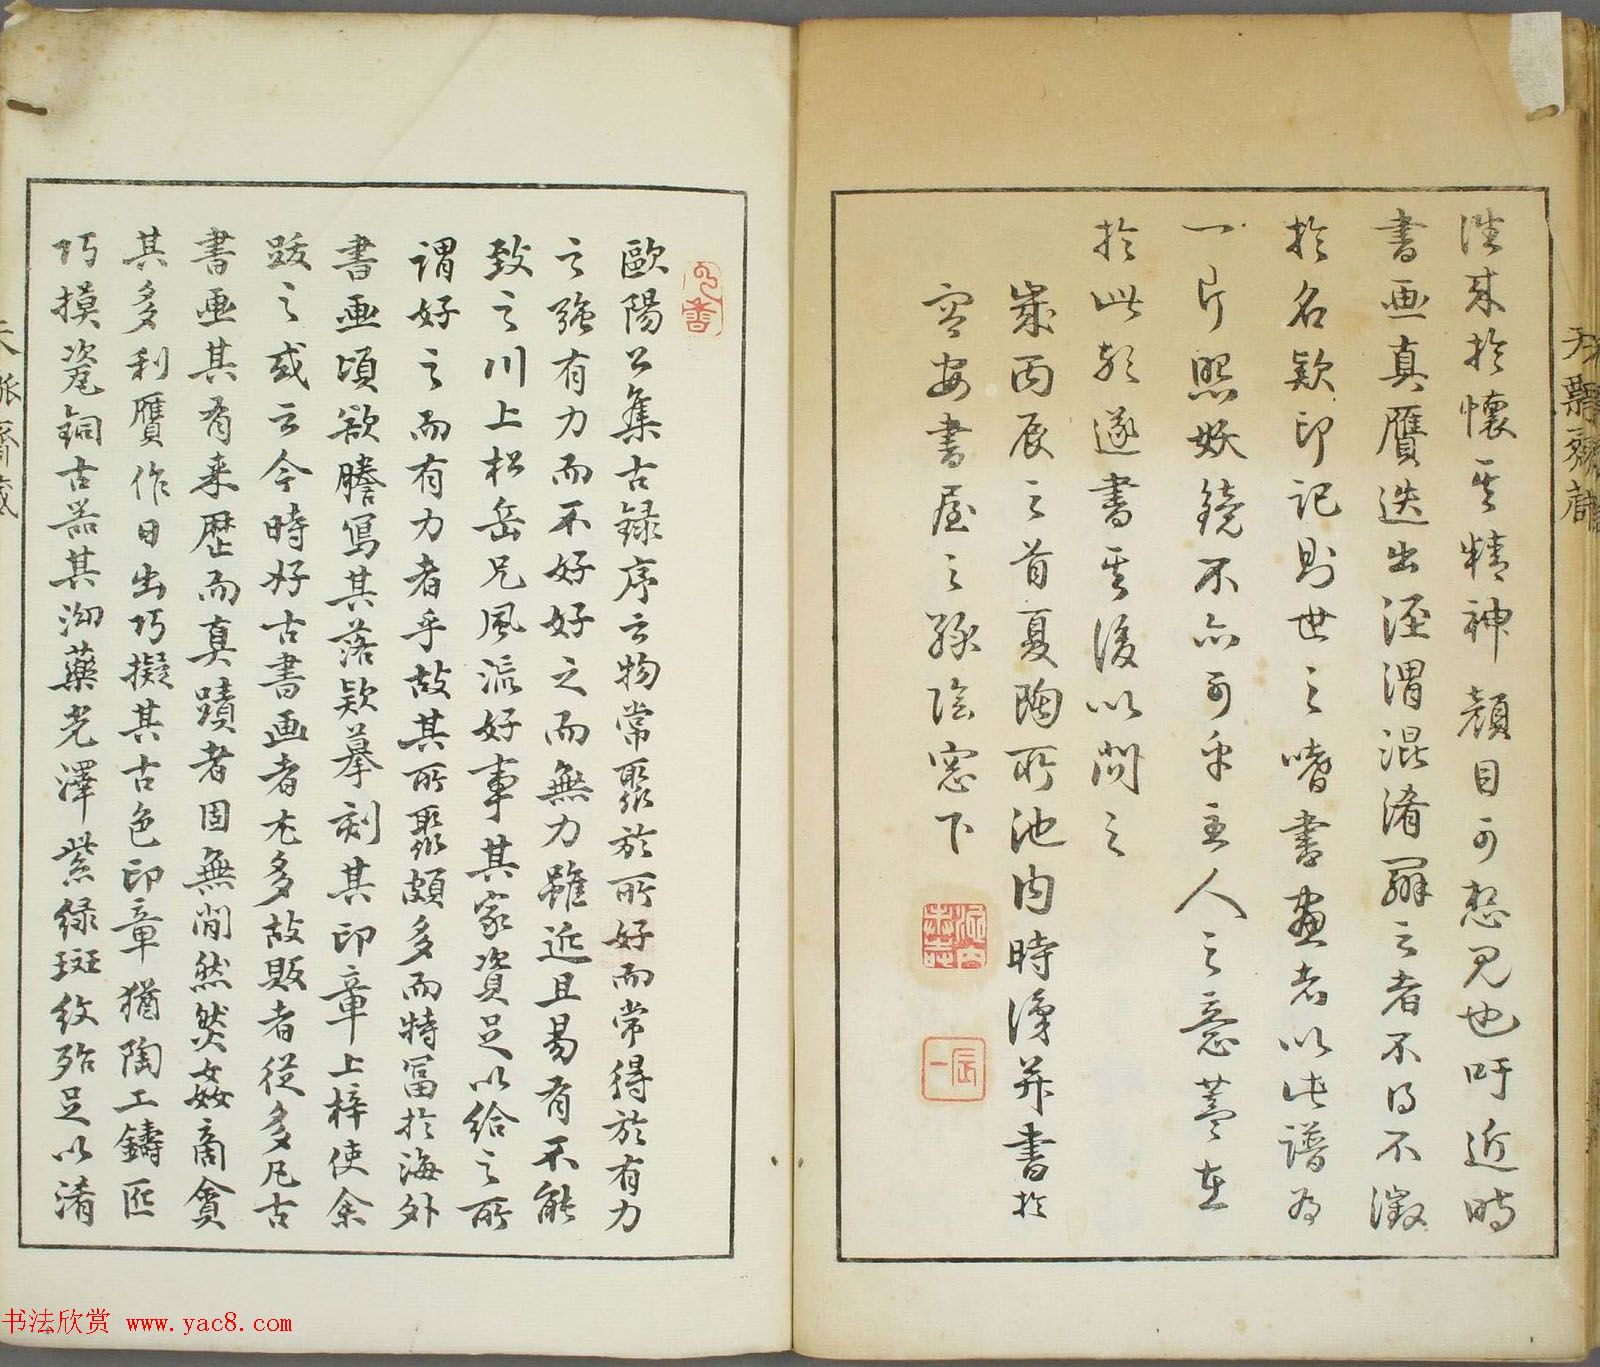 從來於懷其精神顏目可想見也吁近時
書画真贋迭出涇渭混淆辨之者不得不澂
於名欵印記則世之嗜書畫者以此譜為
一片照妖鏡不亦可乎主人之意蓋在
於此歟遂書其後以問之
歲丙辰之首夏陶所池内時漫并書於
容安書屋之緑陰窓下
歐陽公集古録序云物常聚於所好而常得於有力
之強有力而不好好之而無力雖近且易有不能
致之川上松岳兄風流好事其家資足以給之所
謂好之而有力者乎故其所聚頗多而特富於海外
書画頃欲謄寫其落欵摹刻其印章上梓使余
跋之或云今時好古書画者尤多故販者從多凡古
書画其有来歴而真蹟者固無間然然姦商貪
其多利贋作日出巧擬其古色印章猶陶工鑄匠
巧摸瓷銅古器其沏藥光澤紫緑斑紋殆足以淆
书法欣赏 www.yac8.com